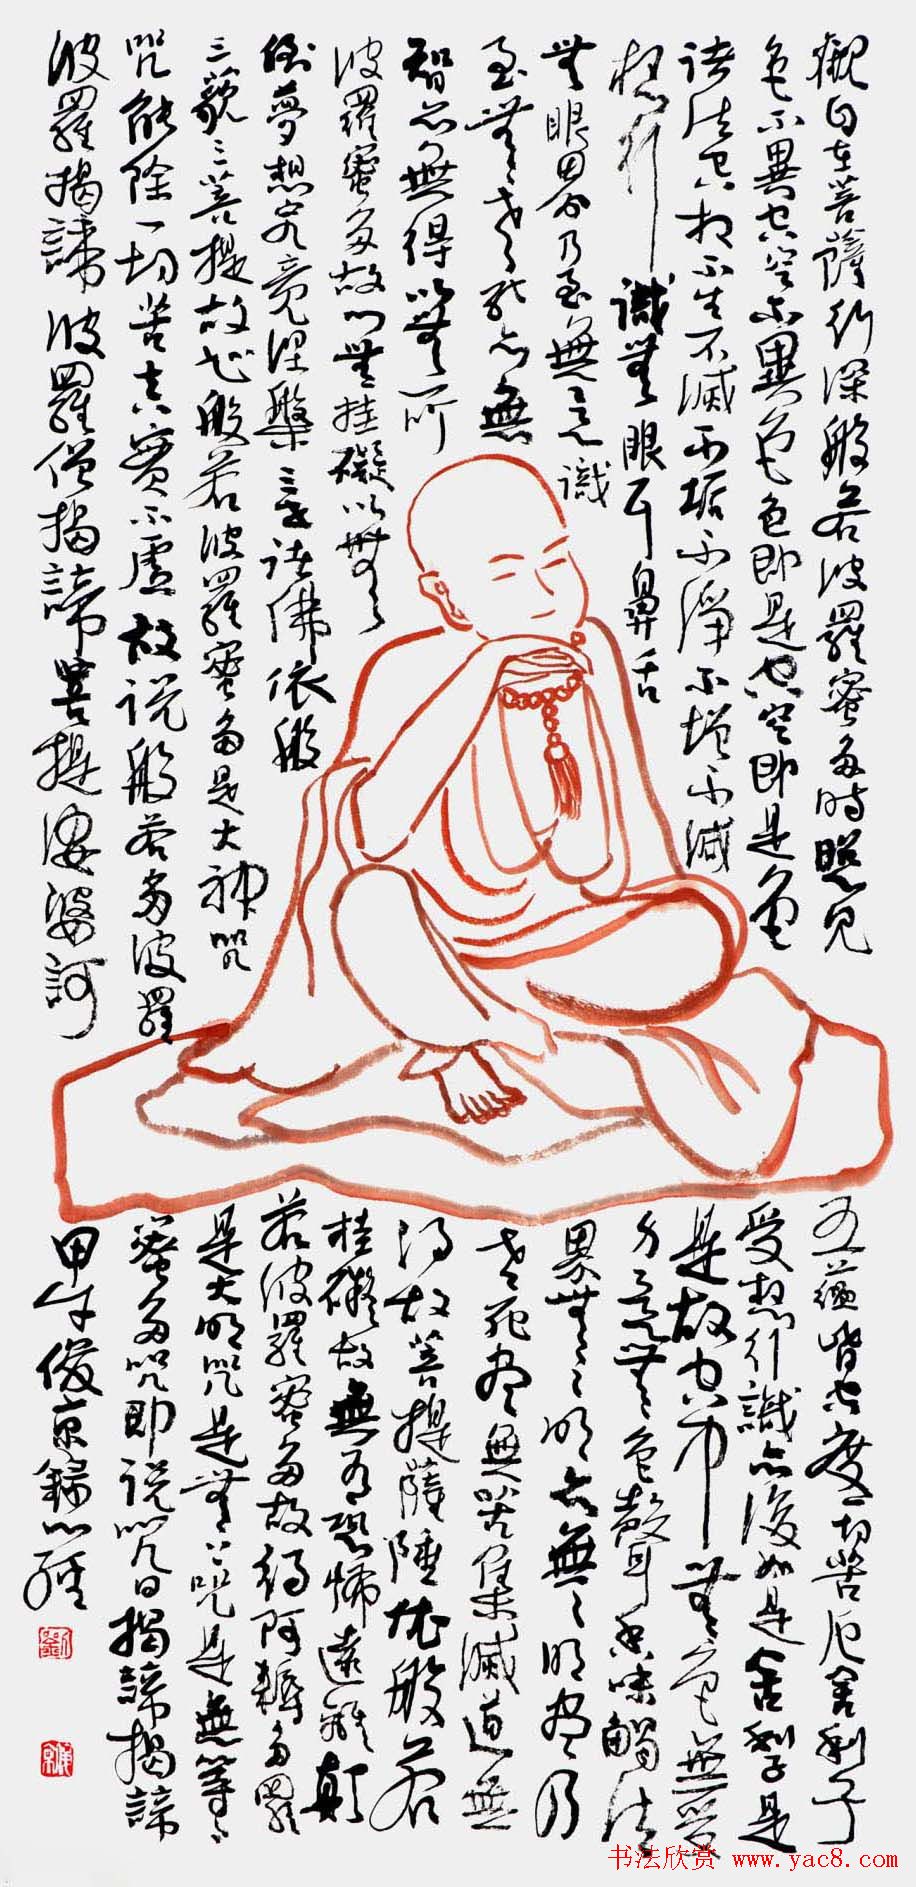 觀自在菩薩行深般若波羅蜜多時照見
五蘊皆空度一切苦厄舍利子
色不異空空不異色色即是空空即是色
受想行識亦復如是舍利子是
諸法空相不生不滅不垢不淨不增不減
是故空中無色無受
想行識無眼耳鼻舌
身意無色聲香味觸法
無眼界乃至無意識
界無無明亦無無明盡乃
至無老死亦無
老死盡無苦集滅道無
智亦無得以無所
得故菩提薩埵依般若
波羅蜜多故心無挂礙以無
挂礙故無有恐怖遠離顛
倒夢想究竟涅槃三世諸佛依般
若波羅蜜多故得阿耨多羅
三藐三菩提故知般若波羅蜜多是大神咒
是大明咒是無上咒是無等等
咒能除一切苦真實不虛故說般若多波羅
蜜多咒即說咒曰揭諦揭諦
波羅揭諦波羅僧揭諦菩提薩婆訶
甲午俊京錄心經
劉
书法欣赏 www.yac8.com